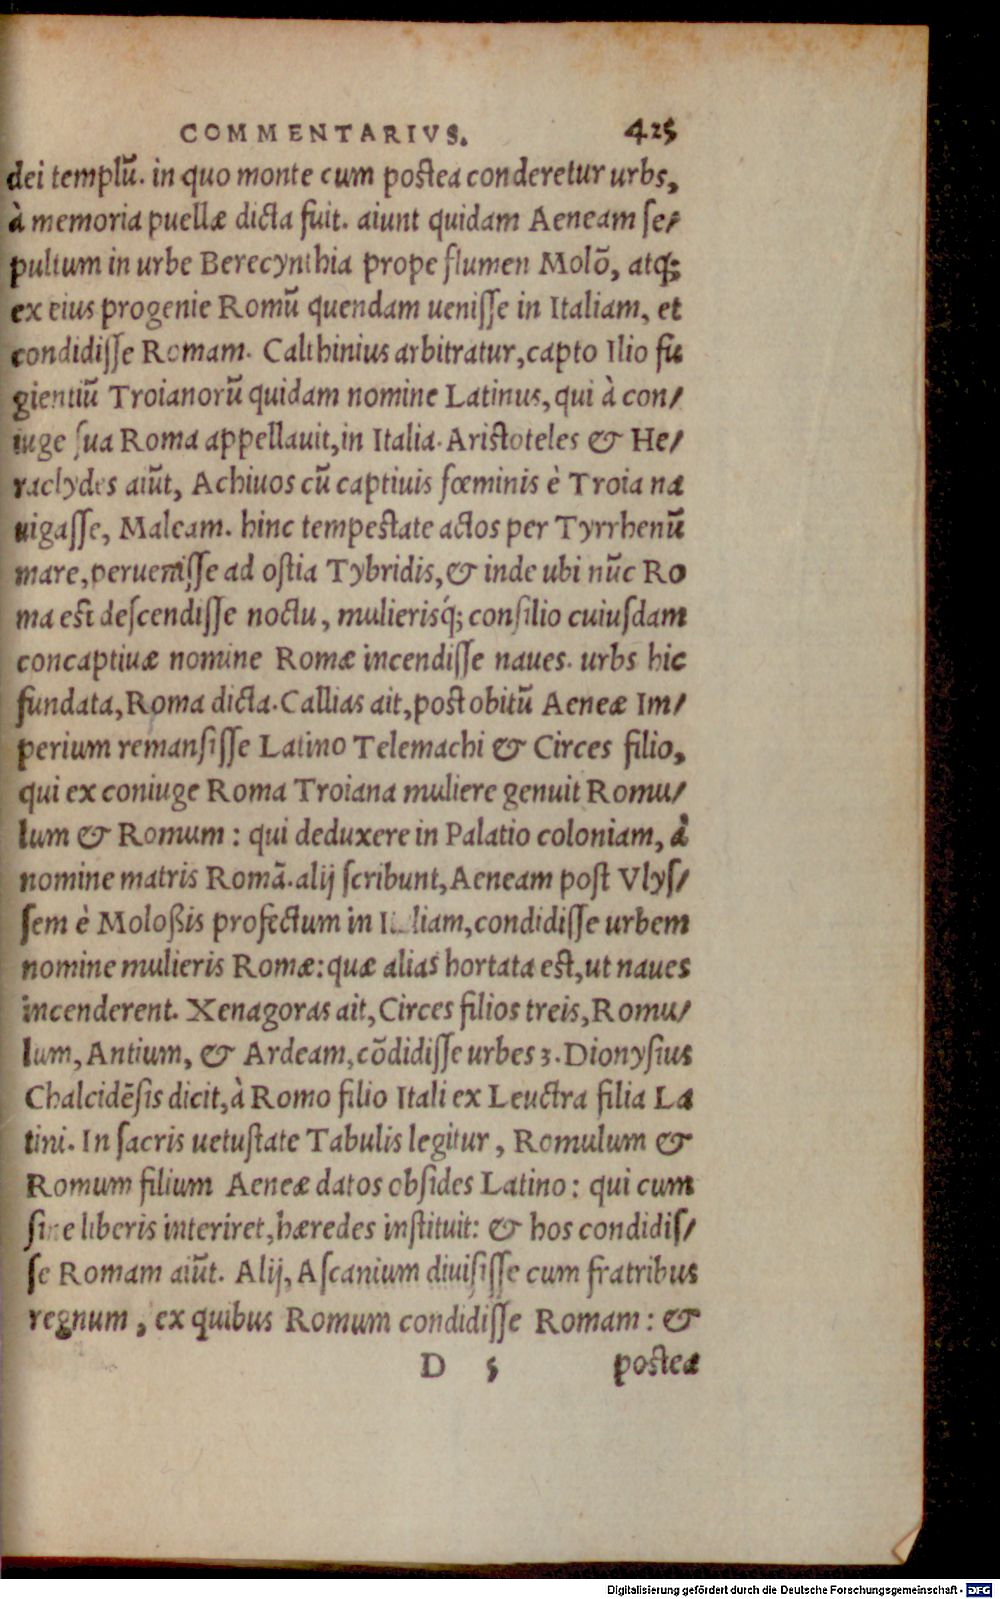 COMMENTARIVS. 425
dei templũ. in quo monte cum postea conderetur urbs,
à memoria puellæ dicta fuit. aiunt quidam Aeneam se/
pultum in urbe Berecynthia prope flumen Molõ, atq;
ex eius progenie Romũ quendam uenisse in Italiam, et
condidisse Romam. Calthinius arbitratur, capto Ilio fu
gientiũ Troianorũ quidam nomine Latinus, qui à con/
iuge sua Roma appellauit, in Italia. Aristoteles & He/
raclydes aiũt, Achiuos cũ captiuis fœminis è Troia na
uigasse, Maleam. hinc tempestate actos per Tyrrhenũ
mare, peruenisse ad ostia Tybridis, & inde ubi nũc Ro
ma est descendisse noctu, mulierisq́; consilio cuiusdam
concaptiuæ nomine Romæ incendisse naues. urbs hic
fundata, Roma dicta. Callias ait, post obitũ Aeneæ Im/
perium remansisse Latino Telemachi & Circes filio,
qui ex coniuge Roma Troiana muliere genuit Romu/
lum & Romum: qui deduxere in Palatio coloniam, à
nomine matris Romã. alij scribunt, Aeneam post Vlys/
sem è Moloßis profectum in Italiam, condidisse urbem
nomine mulieris Romæ: quæ alias hortata est, ut naues
incenderent. Xenagoras ait, Circes filios treis, Romu/
lum, Antium, & Ardeam, cõdidisse urbes 3. Dionysius
Chalcidẽsis dicit, à Romo filio Itali ex Leuctra filia La
tini. In sacris uetustate Tabulis legitur, Romulum &
Romum filium Aeneæ datos obsides Latino: qui cum
sine liberis interiret, hæredes instituit: & hos condidis/
se Romam aiũt. Alij, Ascanium diuisisse cum fratribus
regnum, ex quibus Romum condidisse Romam: &
D 5 postea
Digitalisierung gefördert durch die Deutsche Forschungsgemeinschaft - DFG